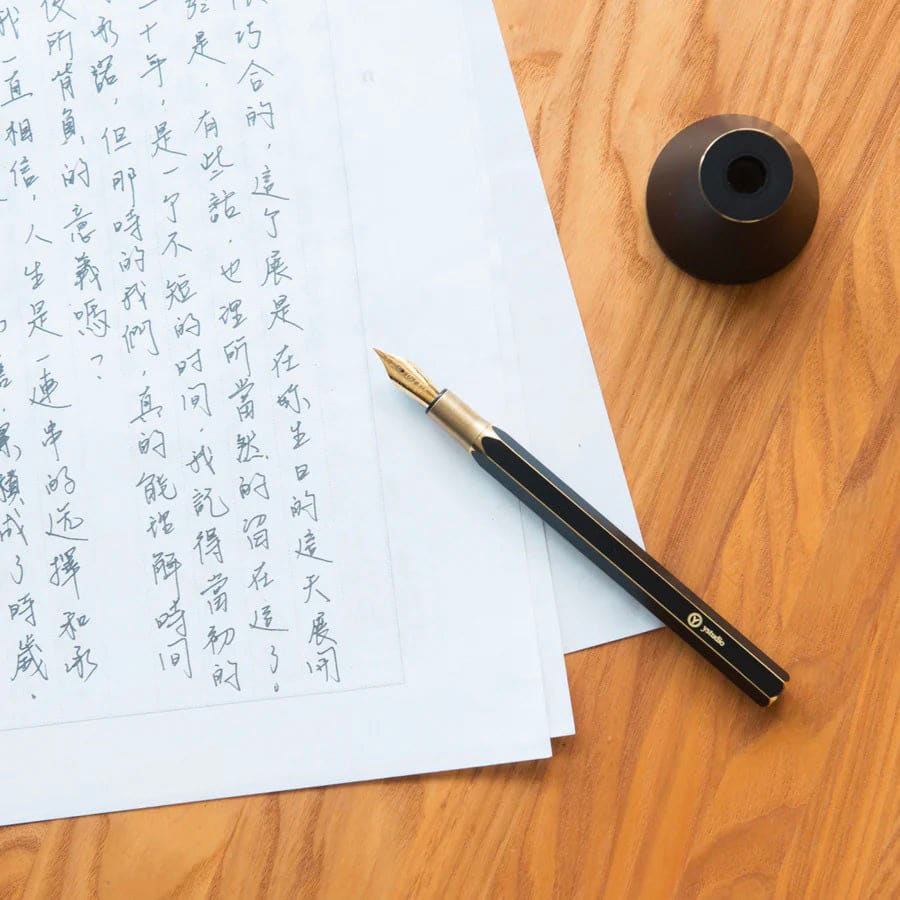 很巧合的，這个展是在妳生日的這天展開
是，有些話，也理所當然的留在這了。
十年，是一个不短的时间，我記得當初的
承諾，但那時的我們，真的能理解時间
後所背負的意義嗎？
我一直相信，人生是一連串的选擇和承
累積成了時歲．
ystudio